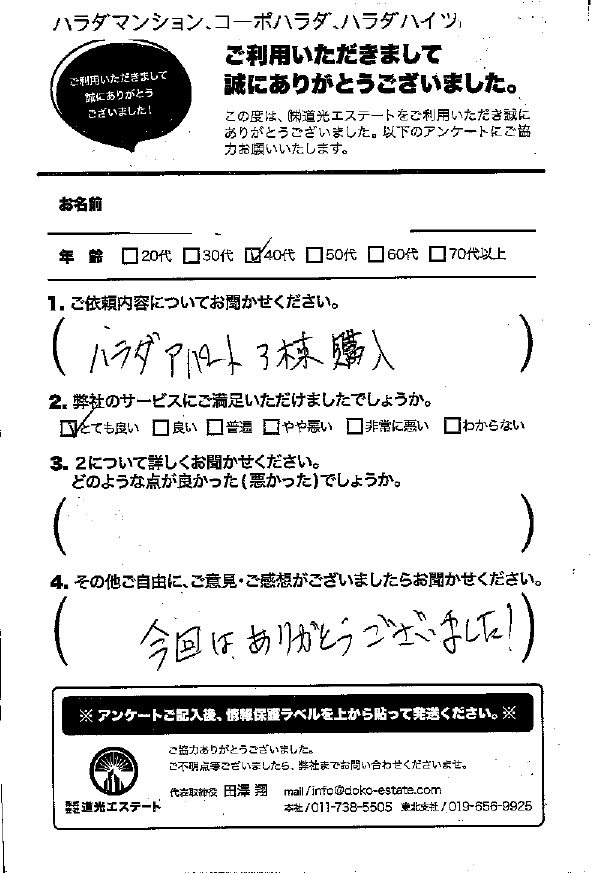 ハラダマンション、コーポハラダ、ハラダハイツ
ご利用いただきまして
誠にありがとう
ございました！
ご利用いただきまして
誠にありがとうございました。
この度は、㈱道光エステートをご利用いただき誠に
ありがとうございました。以下のアンケートにご協
力お願いいたします。
お名前
年 齢 □20代 □30代 ☑40代 □50代 □60代 □70代以上
1. ご依頼内容についてお聞かせください。
(ハラダアパート3棟購入)
2. 弊社のサービスにご満足いただけましたでしょうか。
☑とても良い □良い □普通 □やや悪い □非常に悪い □わからない
3. 2について詳しくお聞かせください。
どのような点が良かった(悪かった)でしょうか。
4. その他ご自由に、ご意見・ご感想がございましたらお聞かせください。
(今回はありがとうございました!)
※ アンケートご記入後、情報保護ラベルを上から貼って発送ください。※
ご協力ありがとうございました。
ご不明点等ございましたら、弊社までお問い合わせくださいませ。
代表取締役 田澤 翔 mail/info@doko-estate.com
株式会社道光エステート 本社/011-738-5505 東北支社/019-656-9925